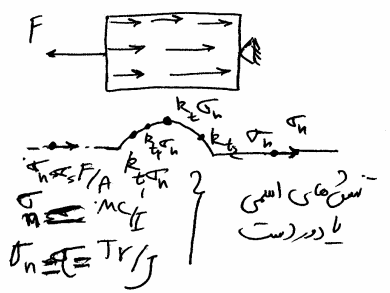 F
k_t σ_n
k_t₁ σ_n k_t₂ σ_n σ_n
σ_n = F/A k_t σ_n
σ_n = MC/I
σ_n = τ = Tr/J
تنش‌های اسمی
یا دوردست